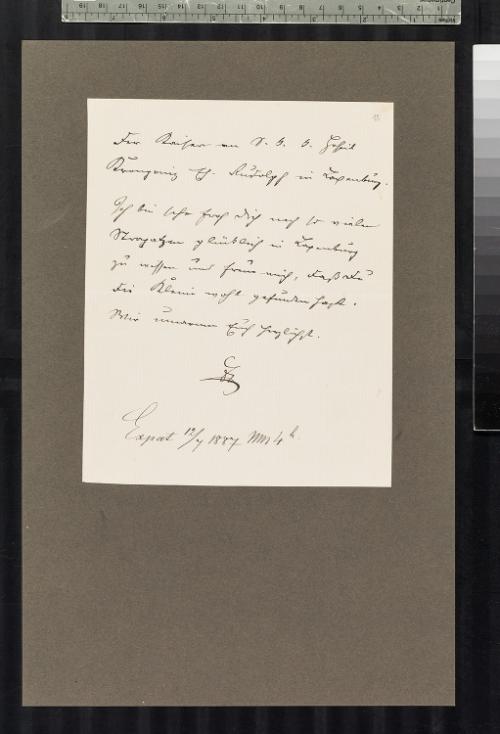 Der Kaiser an S. k. k. Hoheit
Kronprinz Eh. Rudolph in Laxenburg.
Ich bin sehr froh Dich nach so vielen
Strapatzen glücklich in Laxenburg
zu wissen und freue mich, daß Du
die Kleine wohl gefunden hast.
Wir umarmen Euch herzlichst.
Expät 12/7 1887 4h